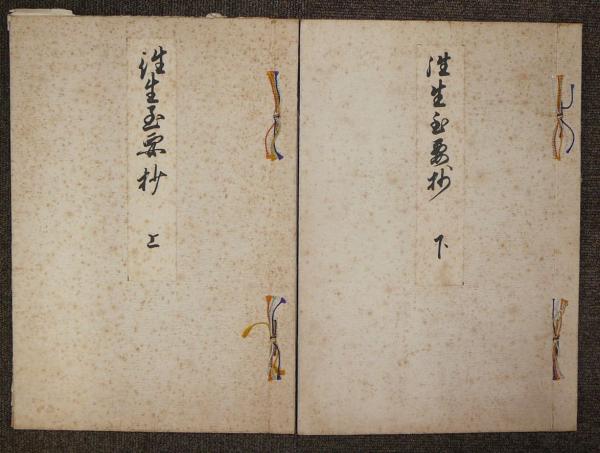 往生至要抄 上
往生至要抄 下